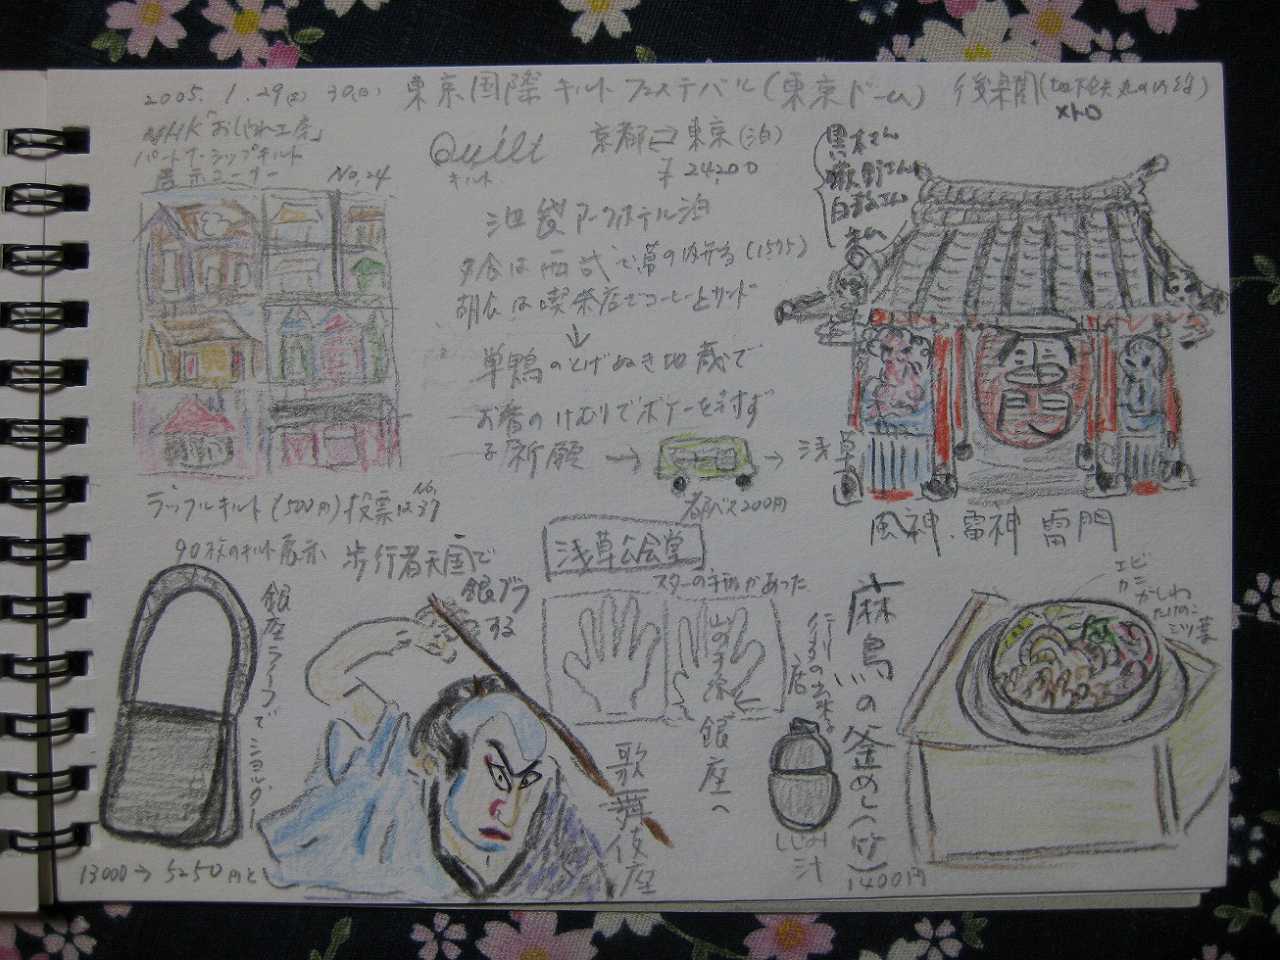 2005. 1. 29(土) 30(日) 東京国際キルトフェスティバル(東京ドーム) 後楽園(地下鉄丸の内線)
メトロ
NHK「おしゃれ工房」
パートナーシップキルト
展示コーナー No.24
Quilt
キルト
京都⇄東京(泊)
¥24200
黒木さん
白
池袋アークホテル泊
夕食は西武で幕の内弁当(1575)
朝食は喫茶店でコーヒーとサンド
↓
巣鴨のとげぬき地蔵で
お香のけむりでボケーを
祈願 → → 浅草
都バス200円
雷門
風神、雷神 雷門
ラッフルキルト(500円)投票はNo.37
90枚のキルト展示
歩行者天国で
銀ブラ
する
銀座ラーフでショルダー
13000→5250円と
浅草公会堂
スターの手形があった
山の手線銀座へ
歌舞伎座
行列の出来る店
しじみ汁
麻鳥の釜めし(竹)
1400円
エビ
カニ
かしわ
たけのこ
ミツ葉